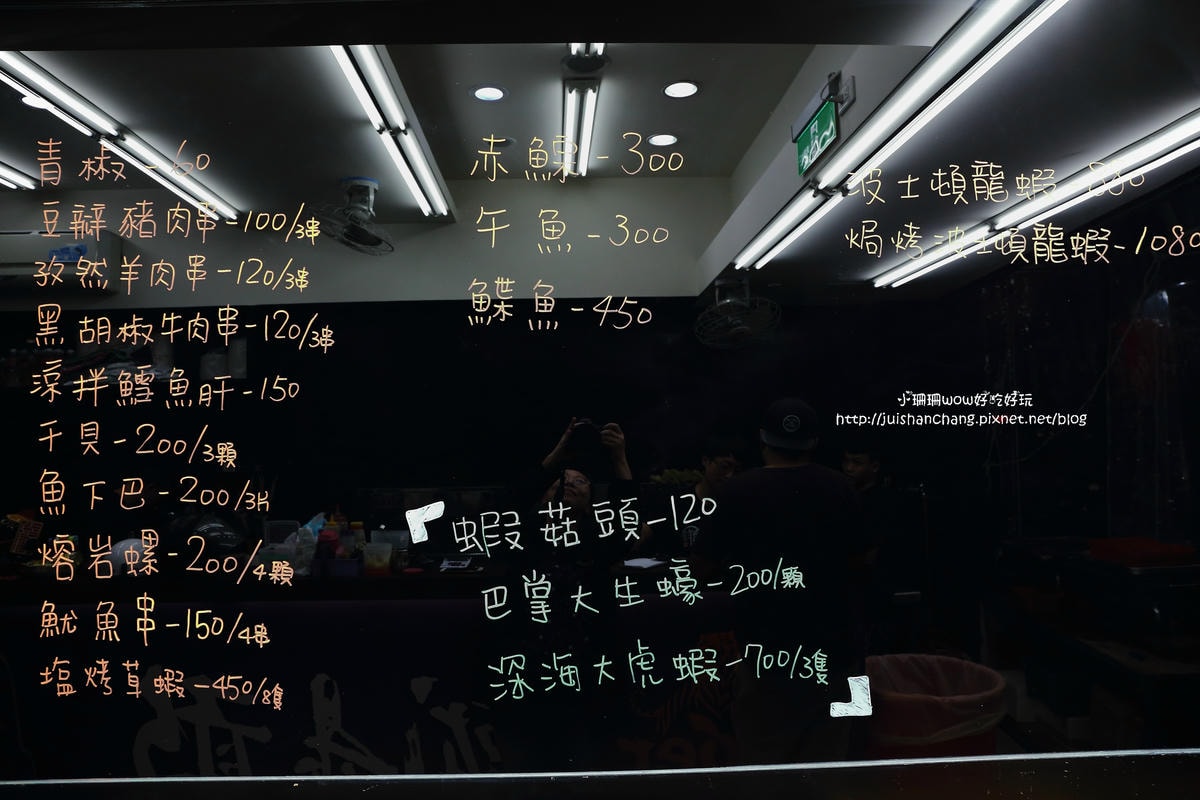 青椒-60
豆瓣豬肉串-100/3串
孜然羊肉串-120/3串
黑胡椒牛肉串-120/3串
涼拌鱈魚肝-150
干貝-200/3顆
魚下巴-200/3片
熔岩螺-200/4顆
魷魚串-150/4串
塩烤草蝦-450/8隻
赤鯮-300
午魚-300
鰈魚-450
波士頓龍蝦-880
焗烤波士頓龍蝦-1080
小珊珊wow好吃好玩
http://juishanchang.pixnet.net/blog
『蝦菇頭-120
巴掌大生蠔-200/顆
深海大虎蝦-700/3隻』